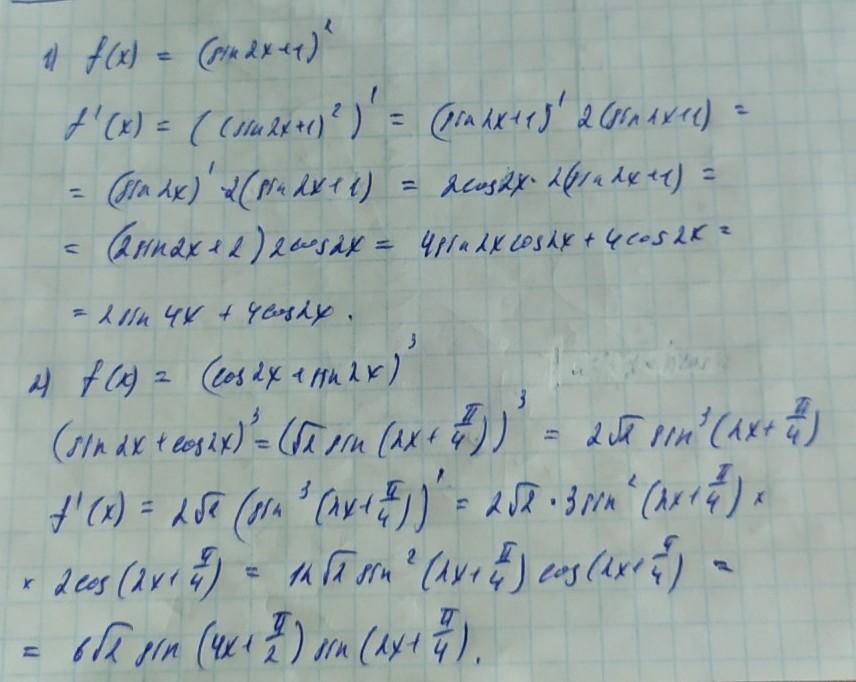 1) f(x) = (sin 2x+1)²
f'(x) = ((sin 2x+1)²)' = (sin 2x+1)' 2(sin 2x+1) =
= (sin 2x)' · 2(sin 2x+1) = 2cos2x · 2(sin 2x+1) =
= (2sin2x+2)2cos2x = 4sin2xcos2x + 4cos2x =
= 2sin 4x + 4cos2x.
2) f(x) = (cos2x + sin 2x)³
(sin 2x + cos2x)³ = (√2 sin (2x+π/4))³ = 2√2 sin³(2x+π/4)
f'(x) = 2√2 (sin³(2x+π/4))' = 2√2 · 3sin²(2x+π/4) ×
× 2cos(2x+π/4) = 12√2 sin²(2x+π/4) cos(2x+π/4) =
= 6√2 sin (4x+π/2) sin(2x+π/4).